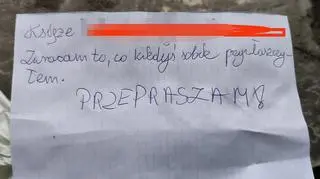 Księże
Zwracam to, co kiedyś sobie przywłaszczy-
łem.
PRZEPRASZAM